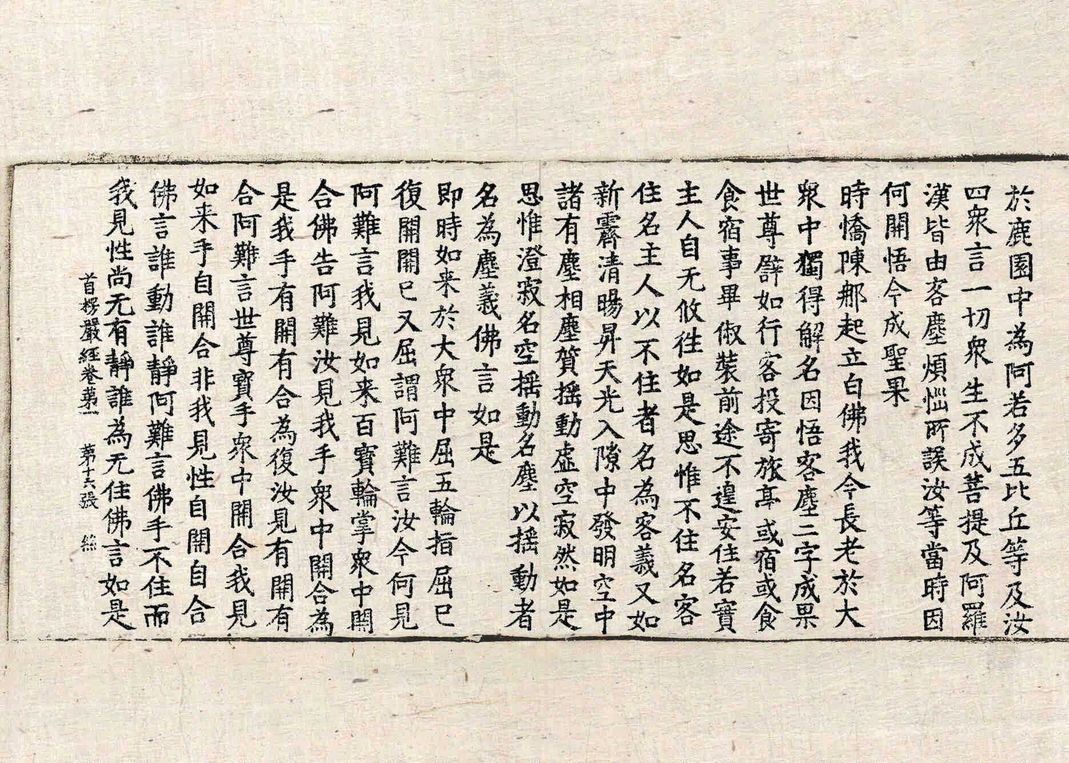 於鹿園中為阿若多五比丘等及汝
四衆言一切衆生不成菩提及阿羅
漢皆由客塵煩惱所誤汝等當時因
何開悟今成聖果
時憍陳那起立白佛我今長老於大
衆中獨得解名因悟客塵二字成果
世尊譬如行客投寄旅亭或宿或食
食宿事畢俶裝前途不遑安住若實
主人自无攸往如是思惟不住名客
住名主人以不住者名為客義又如
新霽清暘昇天光入隙中發明空中
諸有塵相塵質揺動虛空寂然如是
思惟澄寂名空揺動名塵以揺動者
名為塵義佛言如是
即時如来於大衆中屈五輪指屈已
復開開已又屈謂阿難言汝今何見
阿難言我見如来百寶輪掌衆中開
合佛告阿難汝見我手衆中開合為
是我手有開有合為復汝見有開有
合阿難言世尊寶手衆中開合我見
如来手自開合非我見性自開自合
佛言誰動誰靜阿難言佛手不住而
我見性尚无有靜誰為无住佛言如是
首楞嚴經卷第一 第十六張